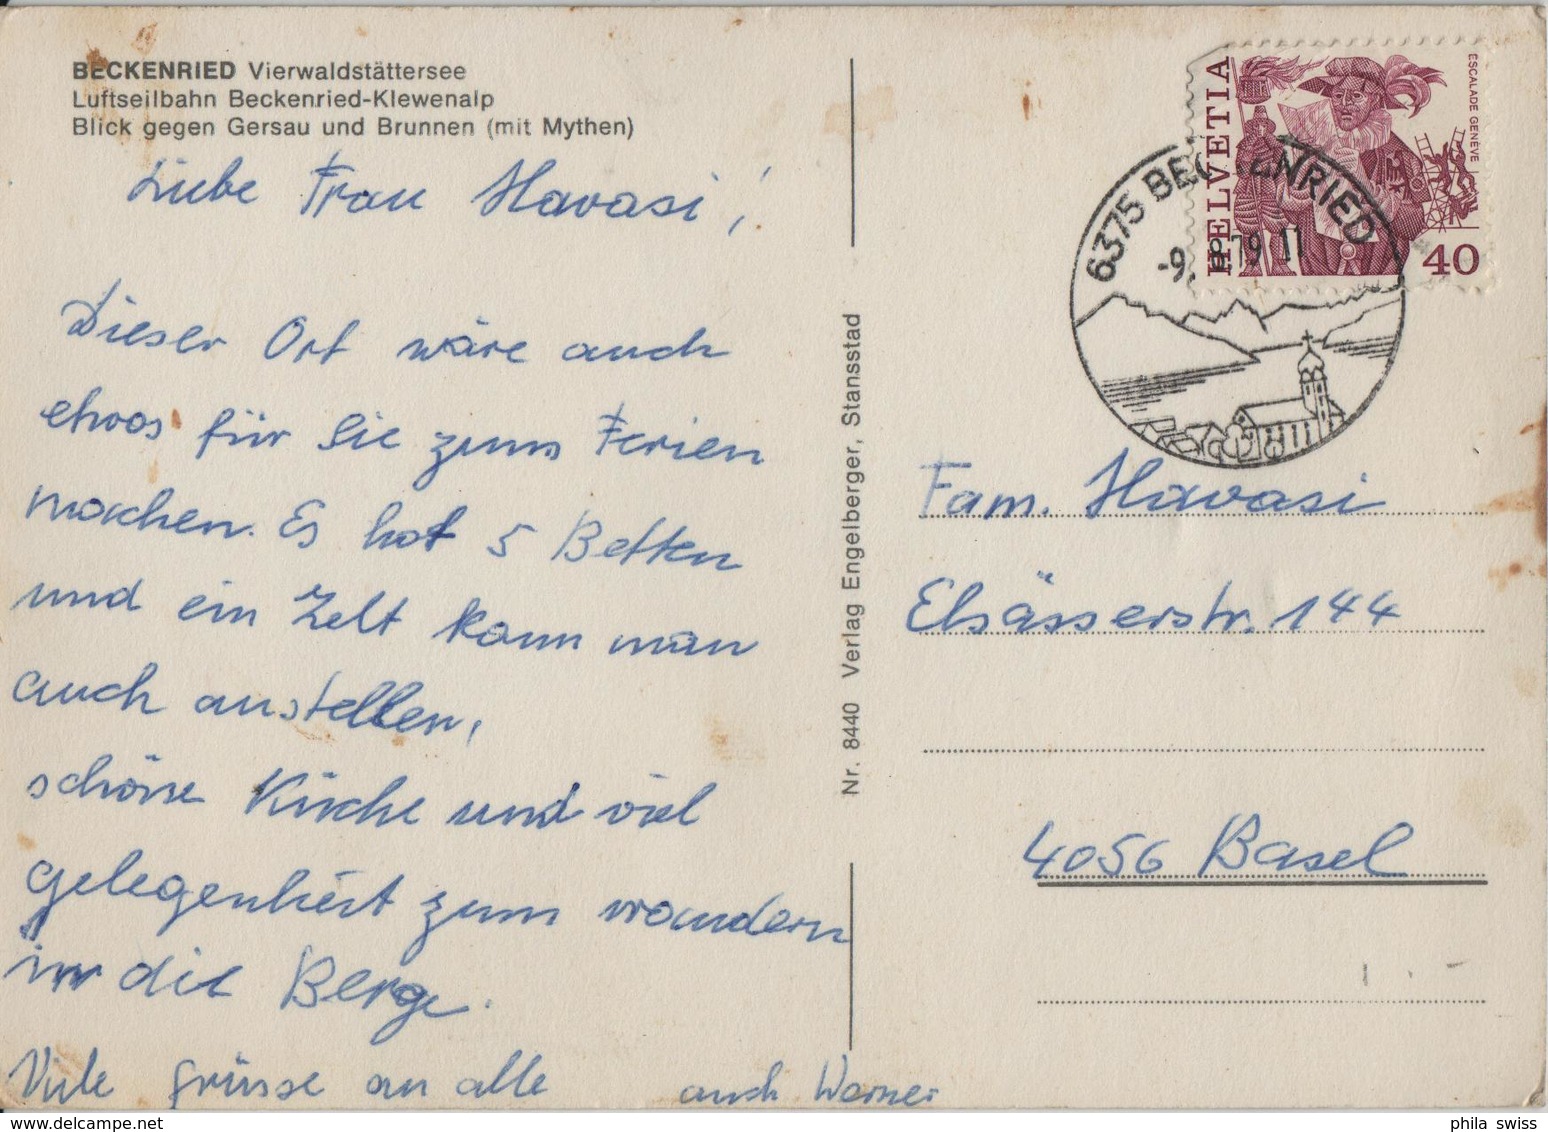 BECKENRIED Vierwaldstättersee
Luftseilbahn Beckenried-Klewenalp
Blick gegen Gersau und Brunnen (mit Mythen)
Liebe Frau Havasi!
Dieser Ort wäre auch
etwas für Sie zum Ferien
machen. Es hat 5 Betten
und ein Zelt kann man
auch anstellen,
schöne Kirche und viel
gelegenheit zum wandern
in die Berge.
Viele grüsse an alle auch Werner
Nr. 8440 Verlag Engelberger, Stansstad
HELVETIA
ESCALADE GENÈVE
40
6375 BECKENRIED
-9. 8.79 11
Fam. Havasi
Elsässerstr. 144
4056 Basel
phila swiss